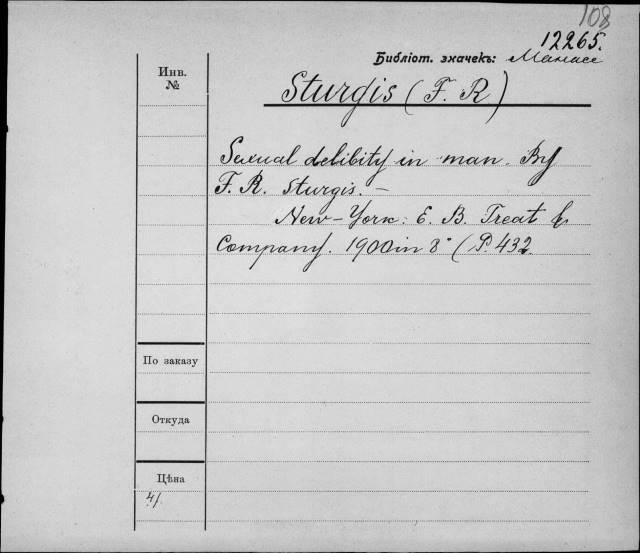 108
12265.
Библіот. значекъ: Манасе
Инв. №
Sturgis (F. R)
Sexual delibity in man. By
F. R. Sturgis. —
New-York: E. B. Treat &
Company. 1900 in 8° (P. 432
По заказу
Откуда
Цѣна
4/.